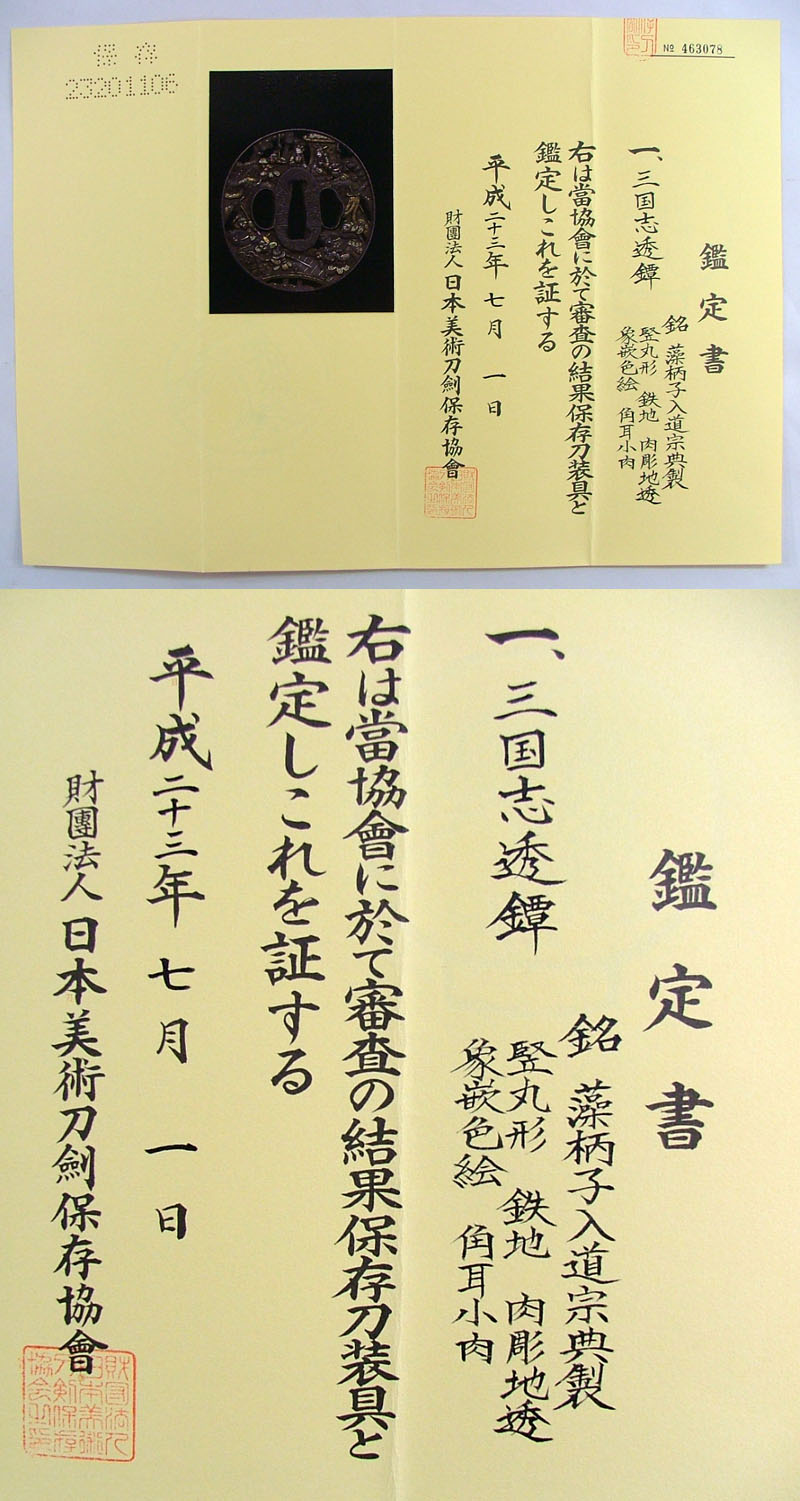 保存
23201106
№ 463078
鑑定書
一、三国志透鐔
銘 藻柄子入道宗典製
竪丸形 鉄地 肉彫地透
象嵌色絵 角耳小肉
右は當協會に於て審査の結果保存刀装具と
鑑定しこれを証する
平成二十三年七月一日
財團法人日本美術刀劍保存協會
鑑定書
一、三国志透鐔
銘 藻柄子入道宗典製
竪丸形 鉄地 肉彫地透
象嵌色絵 角耳小肉
右は當協會に於て審査の結果保存刀装具と
鑑定しこれを証する
平成二十三年七月一日
財團法人日本美術刀劍保存協會